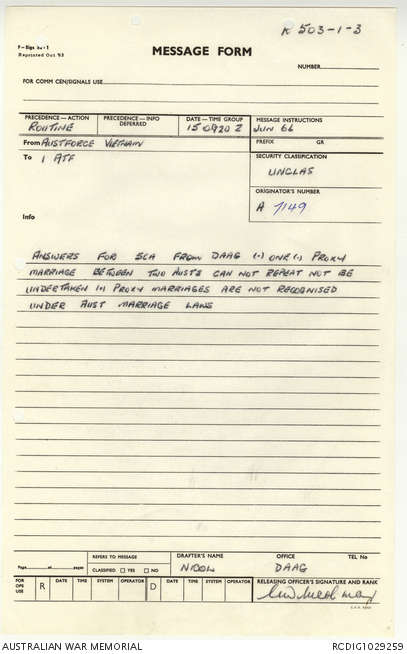 R 503-1-3
MESSAGE FORM
Reprinted Oct '63
NUMBER
FOR COMM CEN/SIGNALS USE
PRECEDENCE—ACTION
ROUTINE
PRECEDENCE—INFO
DEFERRED
DATE—TIME GROUP
150920Z
MESSAGE INSTRUCTIONS
JUN 66
From AUSTFORCE VIETNAM
PREFIX GR
To 1 ATF
SECURITY CLASSIFICATION
UNCLAS
ORIGINATOR'S NUMBER
A 7149
Info
ANSWERS FOR SCA FROM DAAG (.) ONE (.) PROXY
MARRIAGE BETWEEN TWO AUSTS CAN NOT REPEAT NOT BE
UNDERTAKEN (.) PROXY MARRIAGES ARE NOT RECOGNISED
UNDER AUST MARRIAGE LAWS
Page of pages
REFERS TO MESSAGE
CLASSIFIED YES NO
DRAFTER'S NAME
OFFICE
DAAG
TEL No
FOR OPS USE
R DATE TIME SYSTEM OPERATOR D DATE TIME SYSTEM OPERATOR
RELEASING OFFICER'S SIGNATURE AND RANK
AUSTRALIAN WAR MEMORIAL
RCDIG1029259